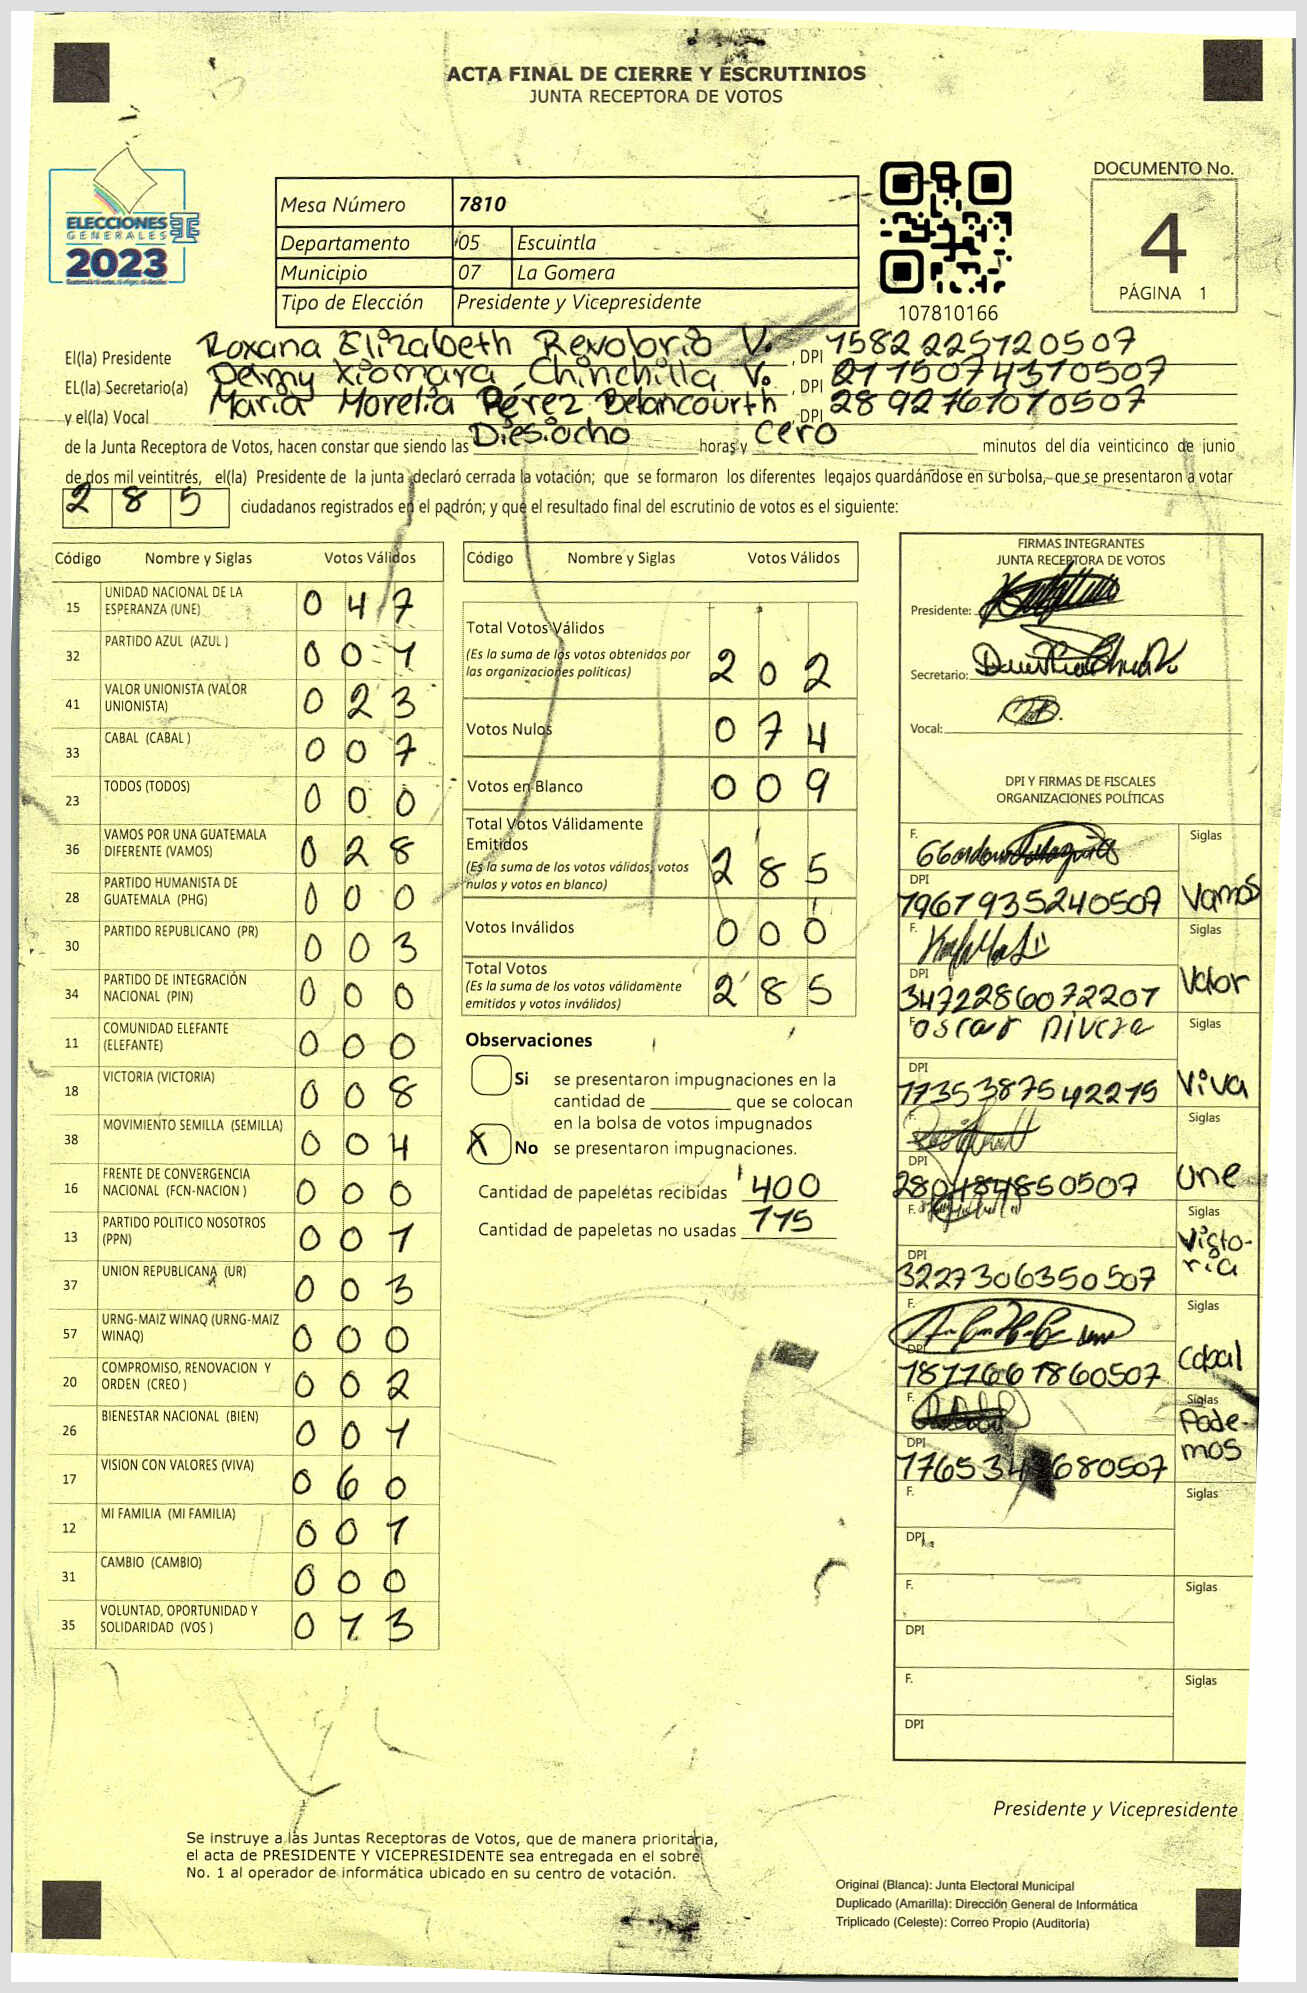 ACTA FINAL DE CIERRE Y ESCRUTINIOS
JUNTA RECEPTORA DE VOTOS
ELECCIONES
GENERALES
2023
Mesa Número 7810
Departamento 05 Escuintla
Municipio 07 La Gomera
Tipo de Elección Presidente y Vicepresidente
107810166
DOCUMENTO No.
4
PÁGINA 1
El(la) Presidente Roxana Elizabeth Revolorio V. , DPI 1582225120507
EL(la) Secretario(a) Deimy Xiomara Chinchilla V. , DPI 2117507431 0507
y el(la) Vocal Maria Morelia Pérez Betancourth , DPI 2892761010507
de la Junta Receptora de Votos, hacen constar que siendo las Diesiocho horas y cero minutos del día veinticinco de junio
de dos mil veintitrés, el(la) Presidente de la junta declaró cerrada la votación; que se formaron los diferentes legajos guardándose en su bolsa, que se presentaron a votar
285 ciudadanos registrados en el padrón; y que el resultado final del escrutinio de votos es el siguiente:
Código Nombre y Siglas Votos Válidos
15 UNIDAD NACIONAL DE LA ESPERANZA (UNE) 047
32 PARTIDO AZUL (AZUL ) 001
41 VALOR UNIONISTA (VALOR UNIONISTA) 023
33 CABAL (CABAL ) 007
23 TODOS (TODOS) 000
36 VAMOS POR UNA GUATEMALA DIFERENTE (VAMOS) 028
28 PARTIDO HUMANISTA DE GUATEMALA (PHG) 000
30 PARTIDO REPUBLICANO (PR) 003
34 PARTIDO DE INTEGRACIÓN NACIONAL (PIN) 000
11 COMUNIDAD ELEFANTE (ELEFANTE) 000
18 VICTORIA (VICTORIA) 008
38 MOVIMIENTO SEMILLA (SEMILLA) 004
16 FRENTE DE CONVERGENCIA NACIONAL (FCN-NACION ) 000
13 PARTIDO POLITICO NOSOTROS (PPN) 001
37 UNION REPUBLICANA (UR) 003
57 URNG-MAIZ WINAQ (URNG-MAIZ WINAQ) 000
20 COMPROMISO, RENOVACION Y ORDEN (CREO ) 002
26 BIENESTAR NACIONAL (BIEN) 001
17 VISION CON VALORES (VIVA) 060
12 MI FAMILIA (MI FAMILIA) 001
31 CAMBIO (CAMBIO) 000
35 VOLUNTAD, OPORTUNIDAD Y SOLIDARIDAD (VOS ) 013
Código Nombre y Siglas Votos Válidos
Total Votos Válidos 202
(Es la suma de los votos obtenidos por
las organizaciones políticas)
Votos Nulos 074
Votos en Blanco 009
Total Votos Válidamente
Emitidos 285
(Es la suma de los votos válidos, votos
nulos y votos en blanco)
Votos Inválidos 000
Total Votos 285
(Es la suma de los votos válidamente
emitidos y votos inválidos)
Observaciones
Si se presentaron impugnaciones en la
cantidad de ________ que se colocan
en la bolsa de votos impugnados
X No se presentaron impugnaciones.
Cantidad de papeletas recibidas 400
Cantidad de papeletas no usadas 115
FIRMAS INTEGRANTES
JUNTA RECEPTORA DE VOTOS
Presidente:
Secretario:
Vocal:
DPI Y FIRMAS DE FISCALES
ORGANIZACIONES POLÍTICAS
F. Siglas
DPI 1967935240507 Vamos
F. Siglas
DPI 3472286072201 Valor
F. oscar Siglas
DPI 1735387542215 Viva
F. Siglas
DPI 280484850507 Une
F. Siglas
DPI 3227306350507 Victo-
ria
F. Siglas
DPI 1811661860507 Cabal
F. Siglas
DPI Pode-
mos
F. Siglas
DPI
F. Siglas
DPI
F. Siglas
DPI
Presidente y Vicepresidente
Se instruye a las Juntas Receptoras de Votos, que de manera prioritaria,
el acta de PRESIDENTE Y VICEPRESIDENTE sea entregada en el sobre
No. 1 al operador de informática ubicado en su centro de votación.
Original (Blanca): Junta Electoral Municipal
Duplicado (Amarilla): Dirección General de Informática
Triplicado (Celeste): Correo Propio (Auditoría)